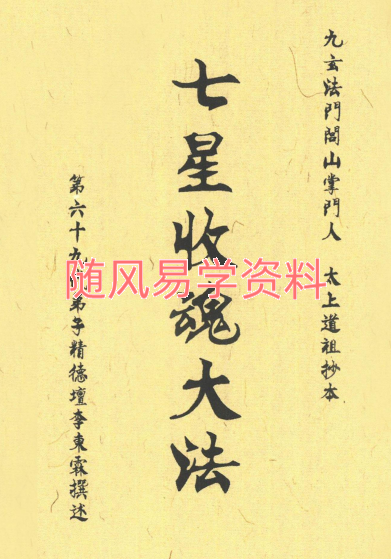 九玄法門閭山掌門人 太上道祖抄本
七星收魂大法
第六十九弟子精德壇李東霖撰述
随风易学资料